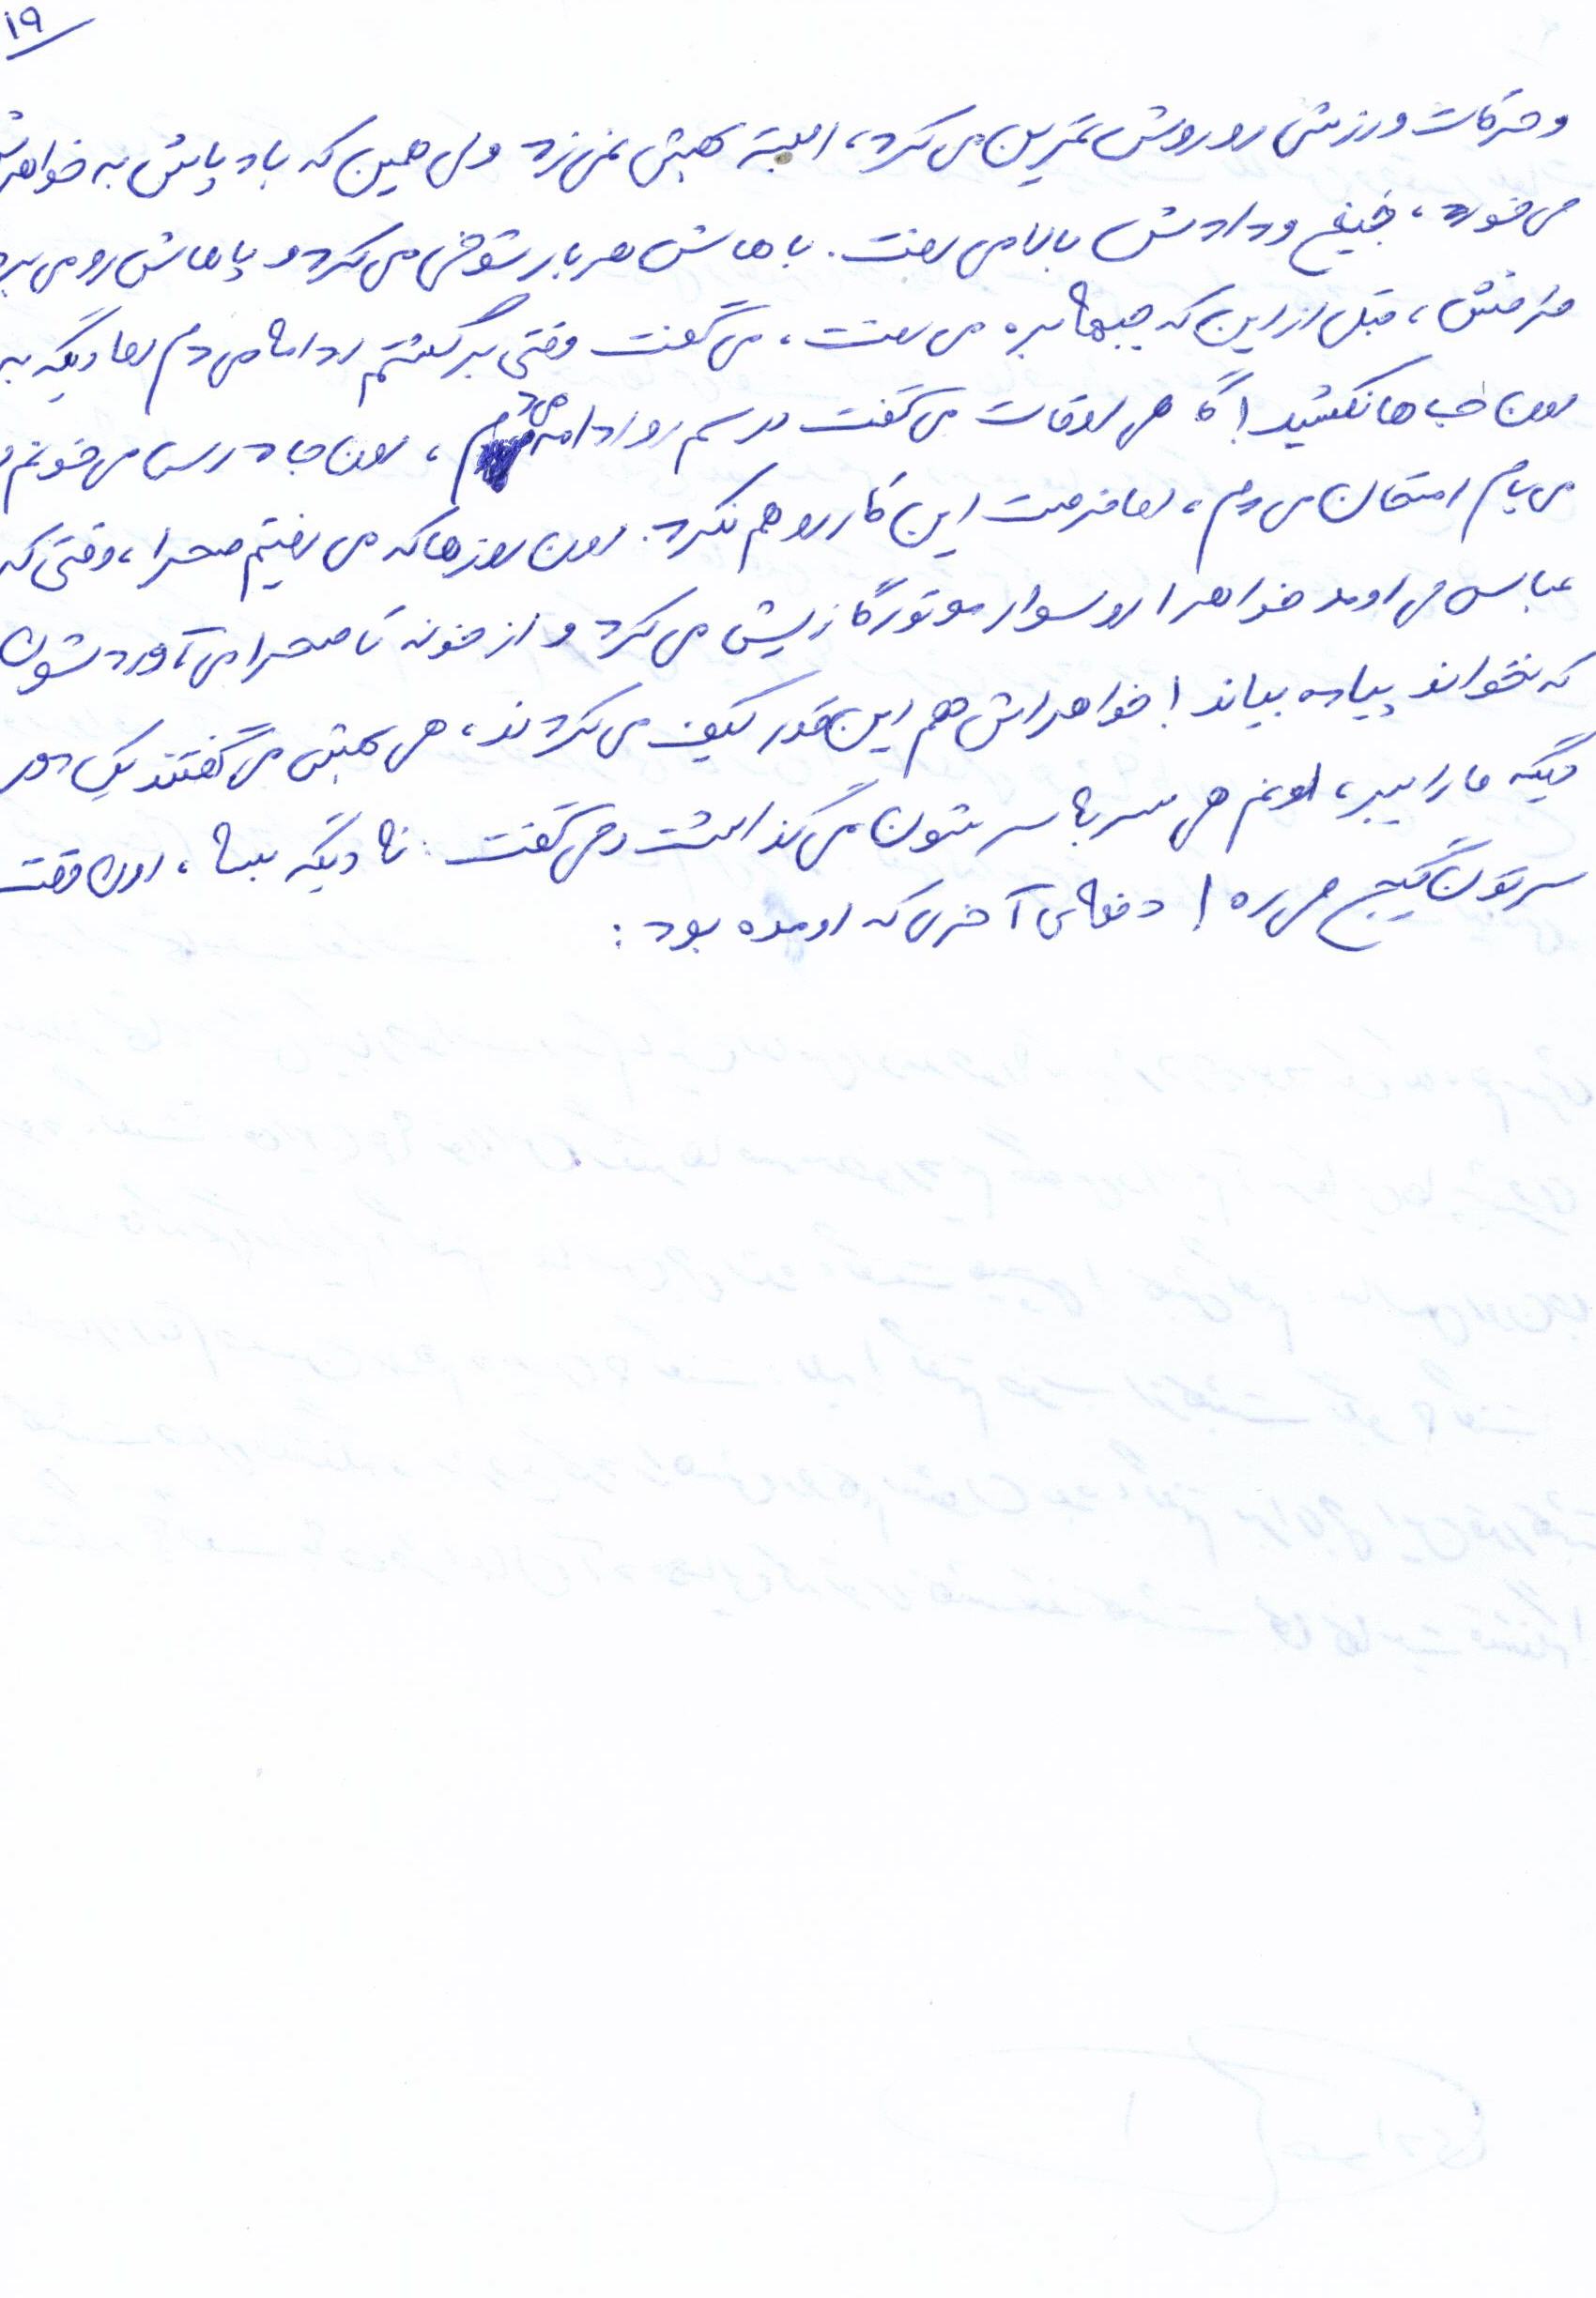 ۱۹
و حرکات ورزشی رو روش تمرین می کرد، البته بهش نمی زد ولی همین که باد پایش به خواهرش
می خورد، جیغ و دادش بالا می رفت. باهاش هر بار شوخی می کرد و پاهاش رو می برد
قبل از این که جبهه بره می رفت، می گفت وقتی برگشتم ادامه می دم اما دیگه به
اون جاها نکشید! گاهی اوقات می گفت درسم رو ادامه می دم، اون جا درس می خونم و
می یام امتحان می دم، اما فرصت این کار رو هم نکرد. اون روزها که می رفتیم صحرا، وقتی که
عباس می اومد خواهرا رو سوار موتور گازیش می کرد و از خونه تا صحرا می آوردشون
که نخواند پیاده بیاند! خواهراش هم این قدر کیف می کردند، هی بهش می گفتند یک دور
دیگه ما را ببر، اونم هی سر به سرشون می گذاشت و می گفت: نه دیگه بسه، اون وقت
سرتون گیج می ره! دفعه ی آخری که اومده بود: